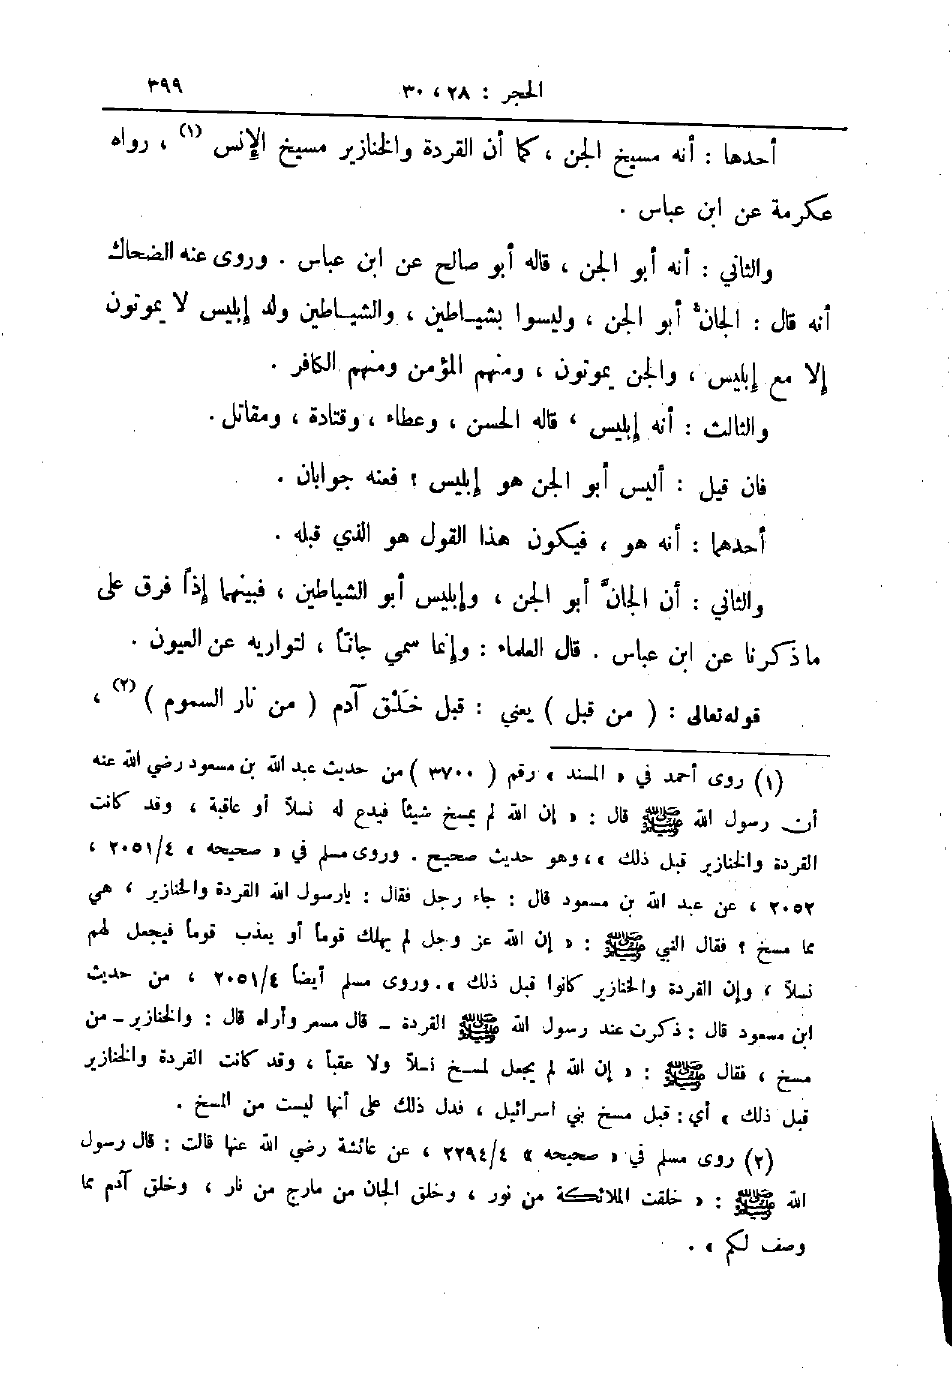 الحجر : ٢٨ ، ٣٠ ٣٩٩
أحدها : أنه مسيخ الجن ، كما أن القردة والخنازير مسيخ الإنس (١) ، رواه
عكرمة عن ابن عباس .
والثاني : أنه أبو الجن ، قاله أبو صالح عن ابن عباس . وروى عنه الضحاك
أنه قال : الجانّ أبو الجن ، وليسوا بشياطين ، والشياطين ولد إبليس لا يموتون
إلا مع إبليس ، والجن يموتون ، ومنهم المؤمن ومنهم الكافر .
والثالث : أنه إبليس ، قاله الحسن ، وعطاء ، وقتادة ، ومقاتل .
فان قيل : أليس أبو الجن هو إبليس ؟ فعنه جوابان .
أحدهما : أنه هو ، فيكون هذا القول هو الذي قبله .
والثاني : أن الجانَّ أبو الجن ، وإبليس أبو الشياطين ، فبينهما إذاً فرق على
ما ذكرنا عن ابن عباس . قال العلماء : وإنما سمي جانّاً ، لتواريه عن العيون .
قوله تعالى : ( من قبل ) يعني : قبل خَلْق آدم ( من نار السموم ) (٢) ،
(١) روى أحمد في « المسند » رقم ( ٣٧٠٠ ) من حديث عبد الله بن مسعود رضي الله عنه
أن رسول الله ﷺ قال : « إن الله لم يمسخ شيئاً فيدع له نسلاً أو عاقبة ، وقد كانت
القردة والخنازير قبل ذلك » ، وهو حديث صحيح . وروى مسلم في « صحيحه » ٢٠٥١/٤ ،
٢٠٥٢ ، عن عبد الله بن مسعود قال : جاء رجل فقال : يارسول الله القردة والخنازير ، هي
مما مسخ ؟ فقال النبي ﷺ : « إن الله عز وجل لم يهلك قوماً أو يعذب قوماً فيجعل لهم
نسلاً ، وإن القردة والخنازير كانوا قبل ذلك » . وروى مسلم أيضاً ٢٠٥١/٤ ، من حديث
ابن مسعود قال : ذكرت عند رسول الله ﷺ القردة ــ قال مسعر وأراه قال : والخنازير ــ من
مسخ ، فقال ﷺ : « إن الله لم يجعل لمسخ نسلاً ولا عقباً ، وقد كانت القردة والخنازير
قبل ذلك » أي : قبل مسخ بني اسرائيل ، فدل ذلك على أنها ليست من المسخ .
(٢) روى مسلم في « صحيحه » ٢٢٩٤/٤ ، عن عائشة رضي الله عنها قالت : قال رسول
الله ﷺ : « خلقت الملائكة من نور ، وخلق الجان من مارج من نار ، وخلق آدم مما
وصف لكم » .